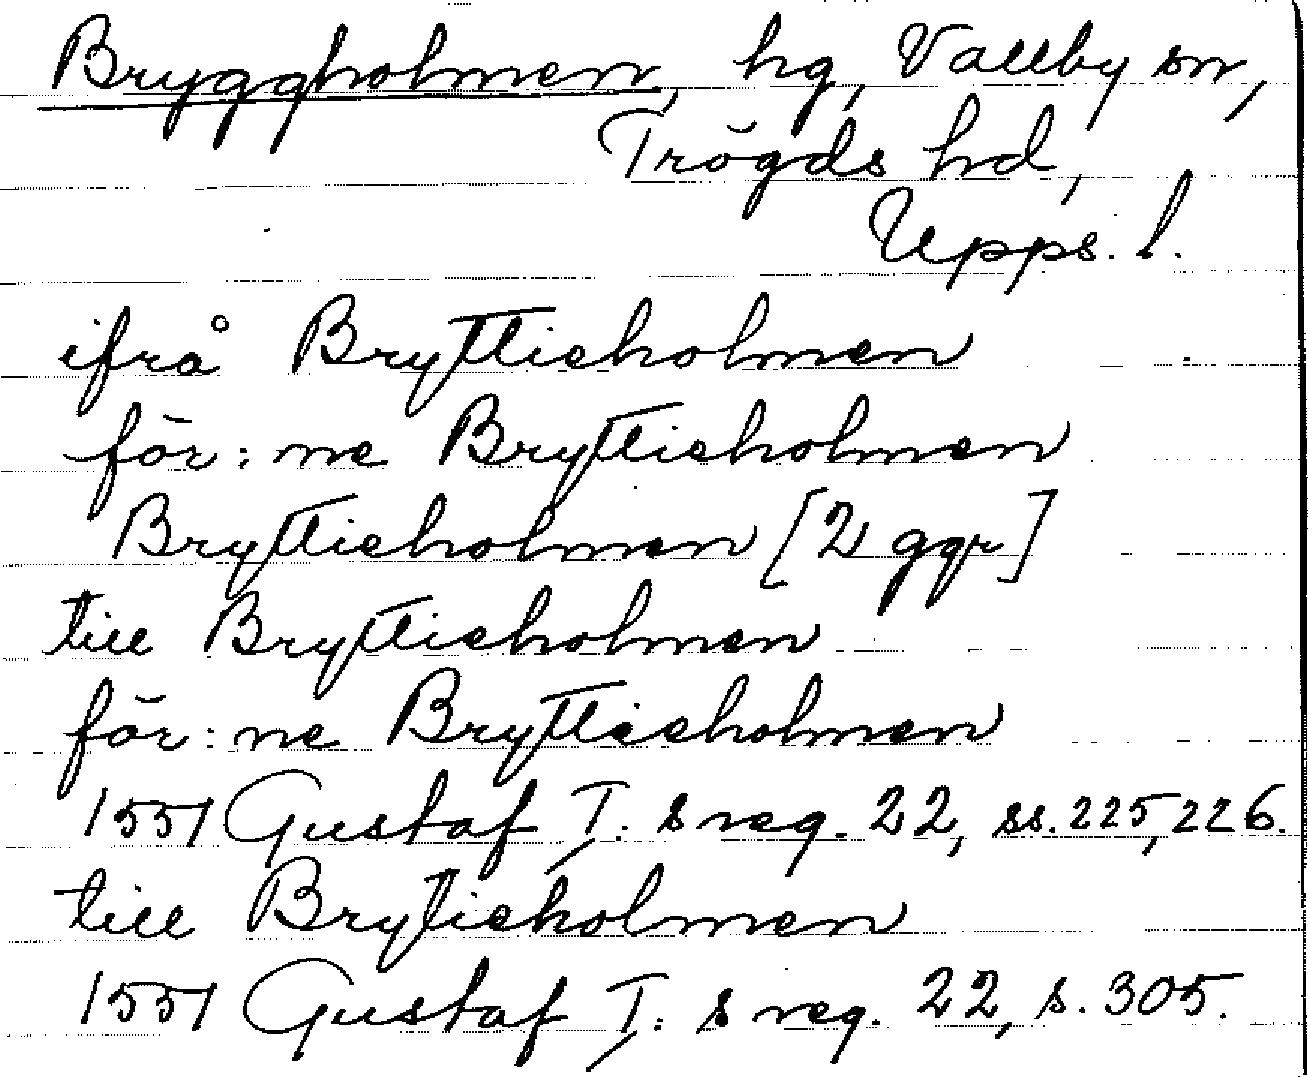 Bryggholmen, hg, Vallby sn,
Trögds hd,
Upps. l.
ifrå Bryttieholmen
för:ne Bryttieholmen
Bryttieholmen [2 ggr]
till Bryttieholmen
för:ne Bryttieholmen
1551 Gustaf I:s reg. 22, ss. 225, 226.
till Brytieholmen
1551 Gustaf I:s reg. 22, s. 305.